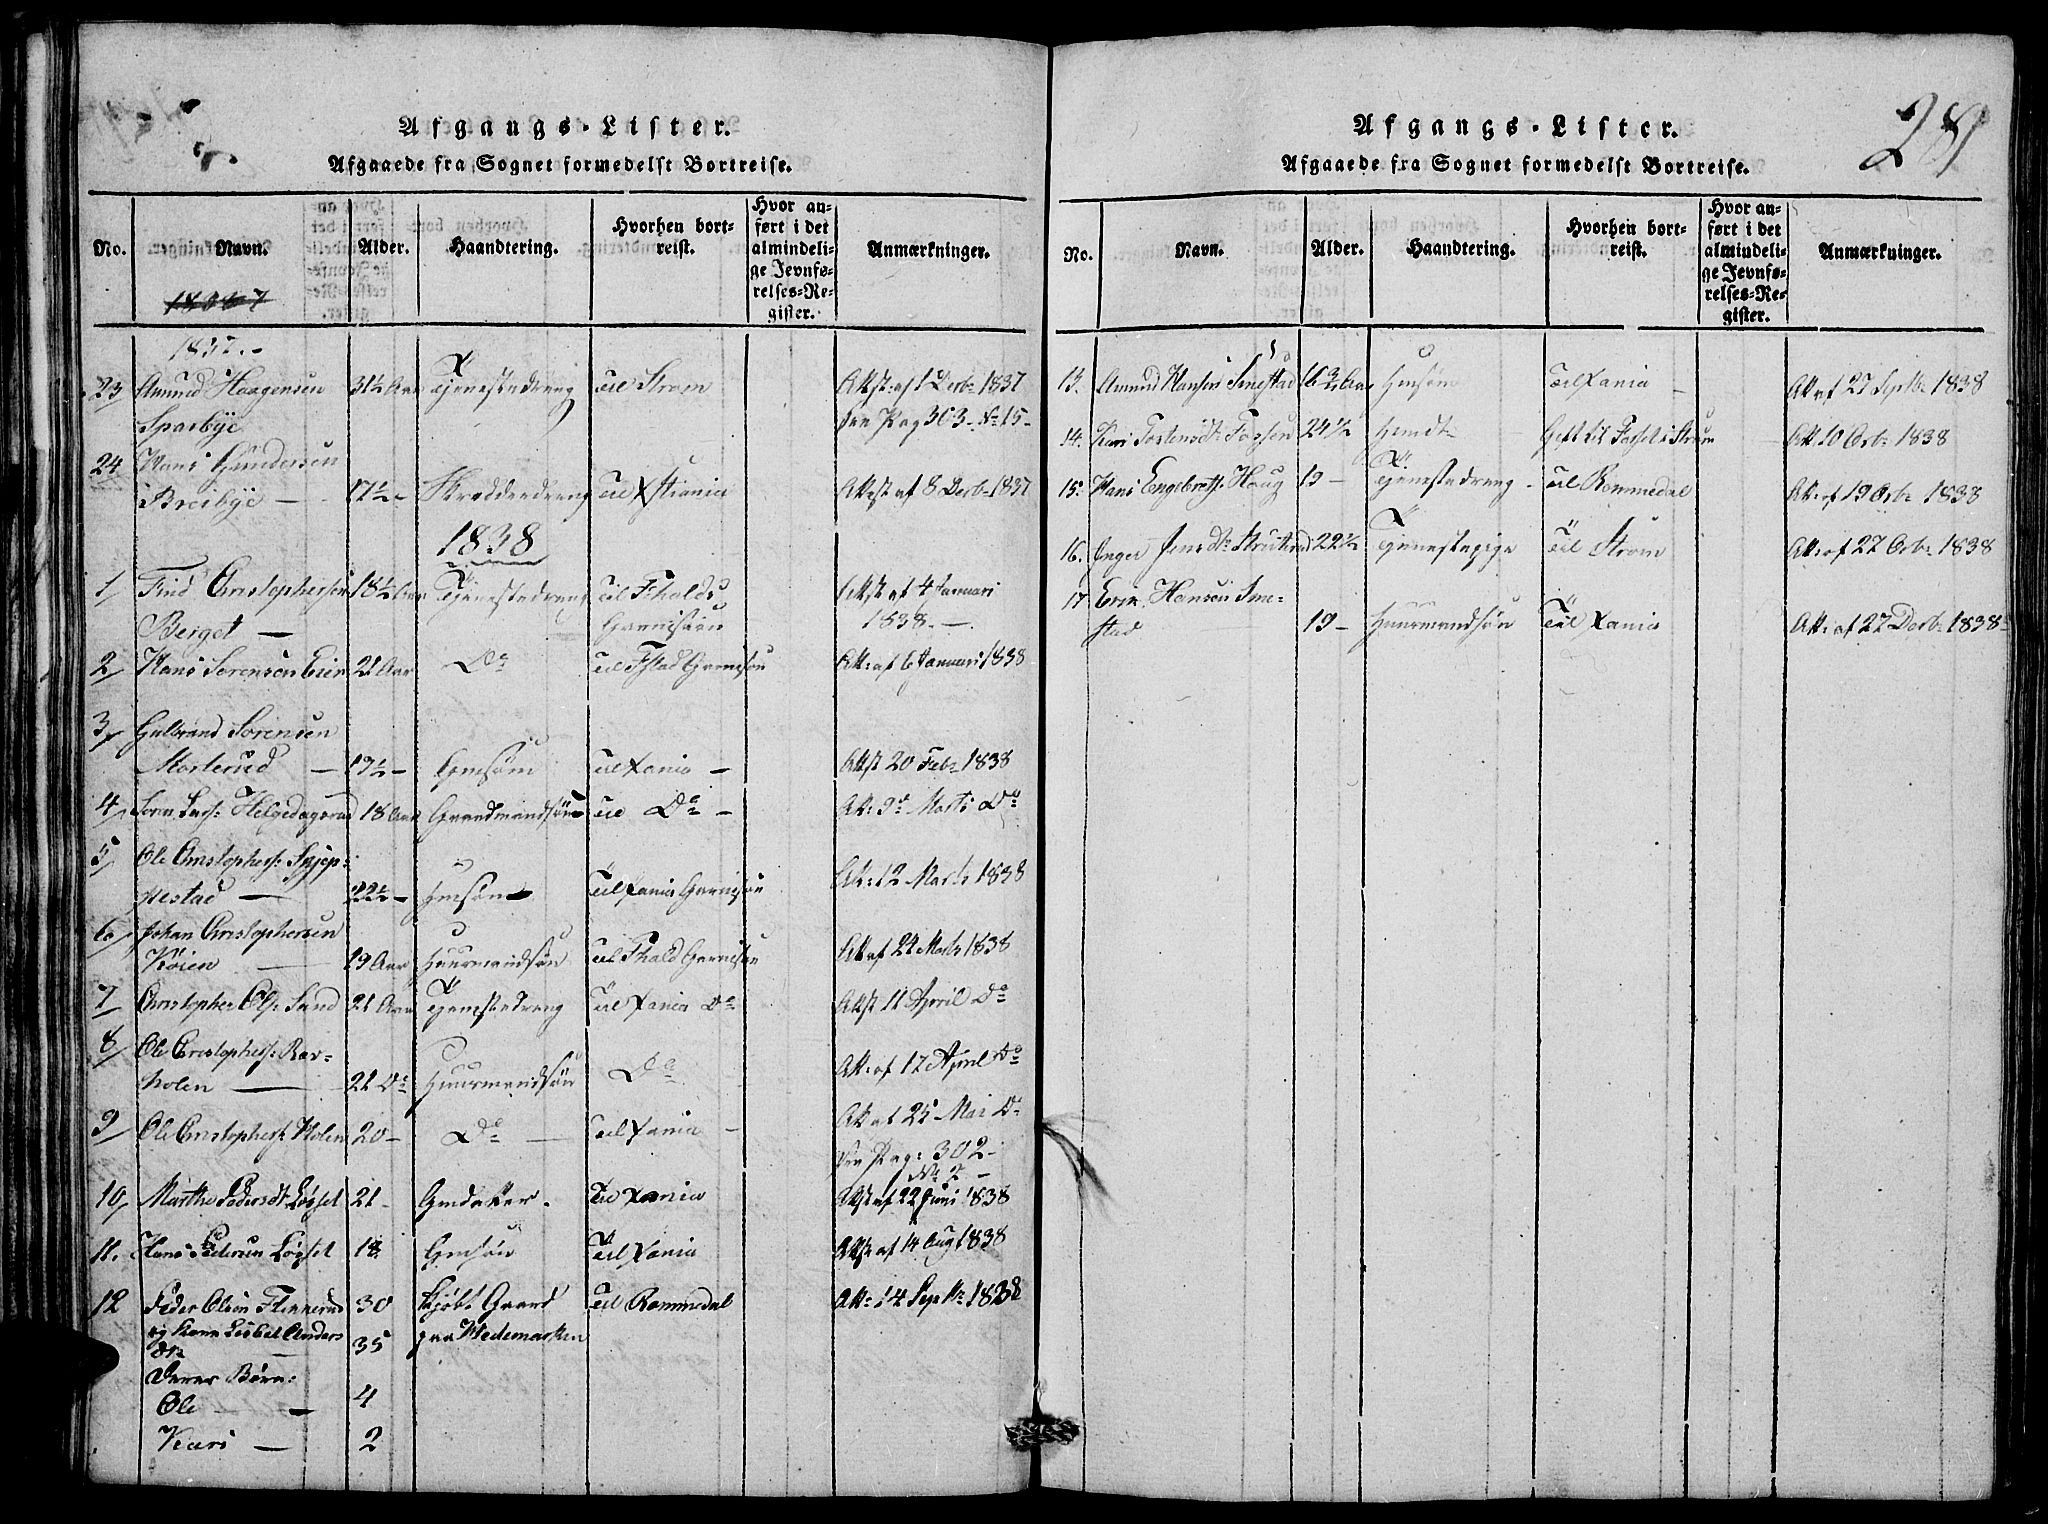 Afgangs-Lister.
Afgaaede fra Sognet formedelst Bortreise.
No. Navn. Alder. Haandtering. Hvorhen bort-reist. Hvor an-ført i det almindeli-ge Jevnfø-relses-Re-gister. Anmærkninger.
1837.-
23 Amund Haagensen 31½ Aar Tjenestedreng Til Strøm Attst: af 1 Decbr 1837
Sparbye see Pag 303. No 15-
24 Hans Gundersen
Breibye - 17½- Skrædderdreng Til Xstiania Attest af 8 Decb- 1837
1838
1/ Find Christophersen 18½ Aar Tjenestedreng Til Fhalds Attst af 4 Januari
Berget - Garnisøn 1838.-
2/ Hans Sørensøn Eier 21 Aar Do Til Fstad Garnisøn Att: af 6 Januari 1838
3/ Gulbrand Sørensen
Morterud - 19½- Gmsøn Til Xania - Attst 20 Feb: 1838
4/ Sørn Lars: Helgedagsrud 18 Aar Gaardmandsøn Til Do - At: 9d Marts Do
5/ Ole Christophers: Skjep-
pestad - 22½- Hmsøn Til Xania Garnisøn At: 12 Marts 1838
6/ Johan Christophersen
Køien - 19 Aar Huusmandsøn Til Fhald Garnisøn At af 24 Marts 1838
7/ Christopher Ols: Sand 21 Aar Tjenestedreng Til Xania Do Attst 11 April Do
8/ Ole Christophers: Rav-
holen - 21 Do Huusmandsøn Do Att: af 17 April Do
9/ Ole Christophers: Holen 20- Do - Til Xania - Att af 25 Mai Do
see Pag: 302-
No 2 -
10/ Marthe Pedersdt Løgset 21- Gmdatter. Til Xania Attst af 22 Juni 1838
11. Hans Pedersen Løgset 18 Gmsøn Til Xania Attst af 14 Aug 1838
12 Peder Olsøn Finnerud 30 Kjøbt Gaard Til Rommedal Att: 14 Septbr 1838
og Kone Lisbet Anders 35 paa Hedemarken
dtr -
Deres Børn:
Ole - 4
Kari - 2
281
Afgangs-Lister.
Afgaaede fra Sognet formedelst Bortreise.
No. Navn. Alder. Haandtering. Hvorhen bort-reist. Hvor an-ført i det almindeli-ge Jevnfø-relses-Re-gister. Anmærkninger.
13. Amund Hansen Smestad 16 Aar Hmsøn Til Xania - Att af 27 Septbr 1838
14. Kari Tostensdt: Fossen 24½ Hmdt Gift til Fosset i Strøm Att 10 Octbr 1838
15. Hans Engebrets: Haug 19 - Tjenestedreng - Til Rommedal Att: af 19 Octbr 1838
16. Inger Jensdtr Strutrud 22½ Tjenestepige Til Strøm Att: af 27 Octbr 1838
17 Erik Hansen Sme-
stad 19- Huusmandsøn Til Xania Att: af 27 Decbr 1838-